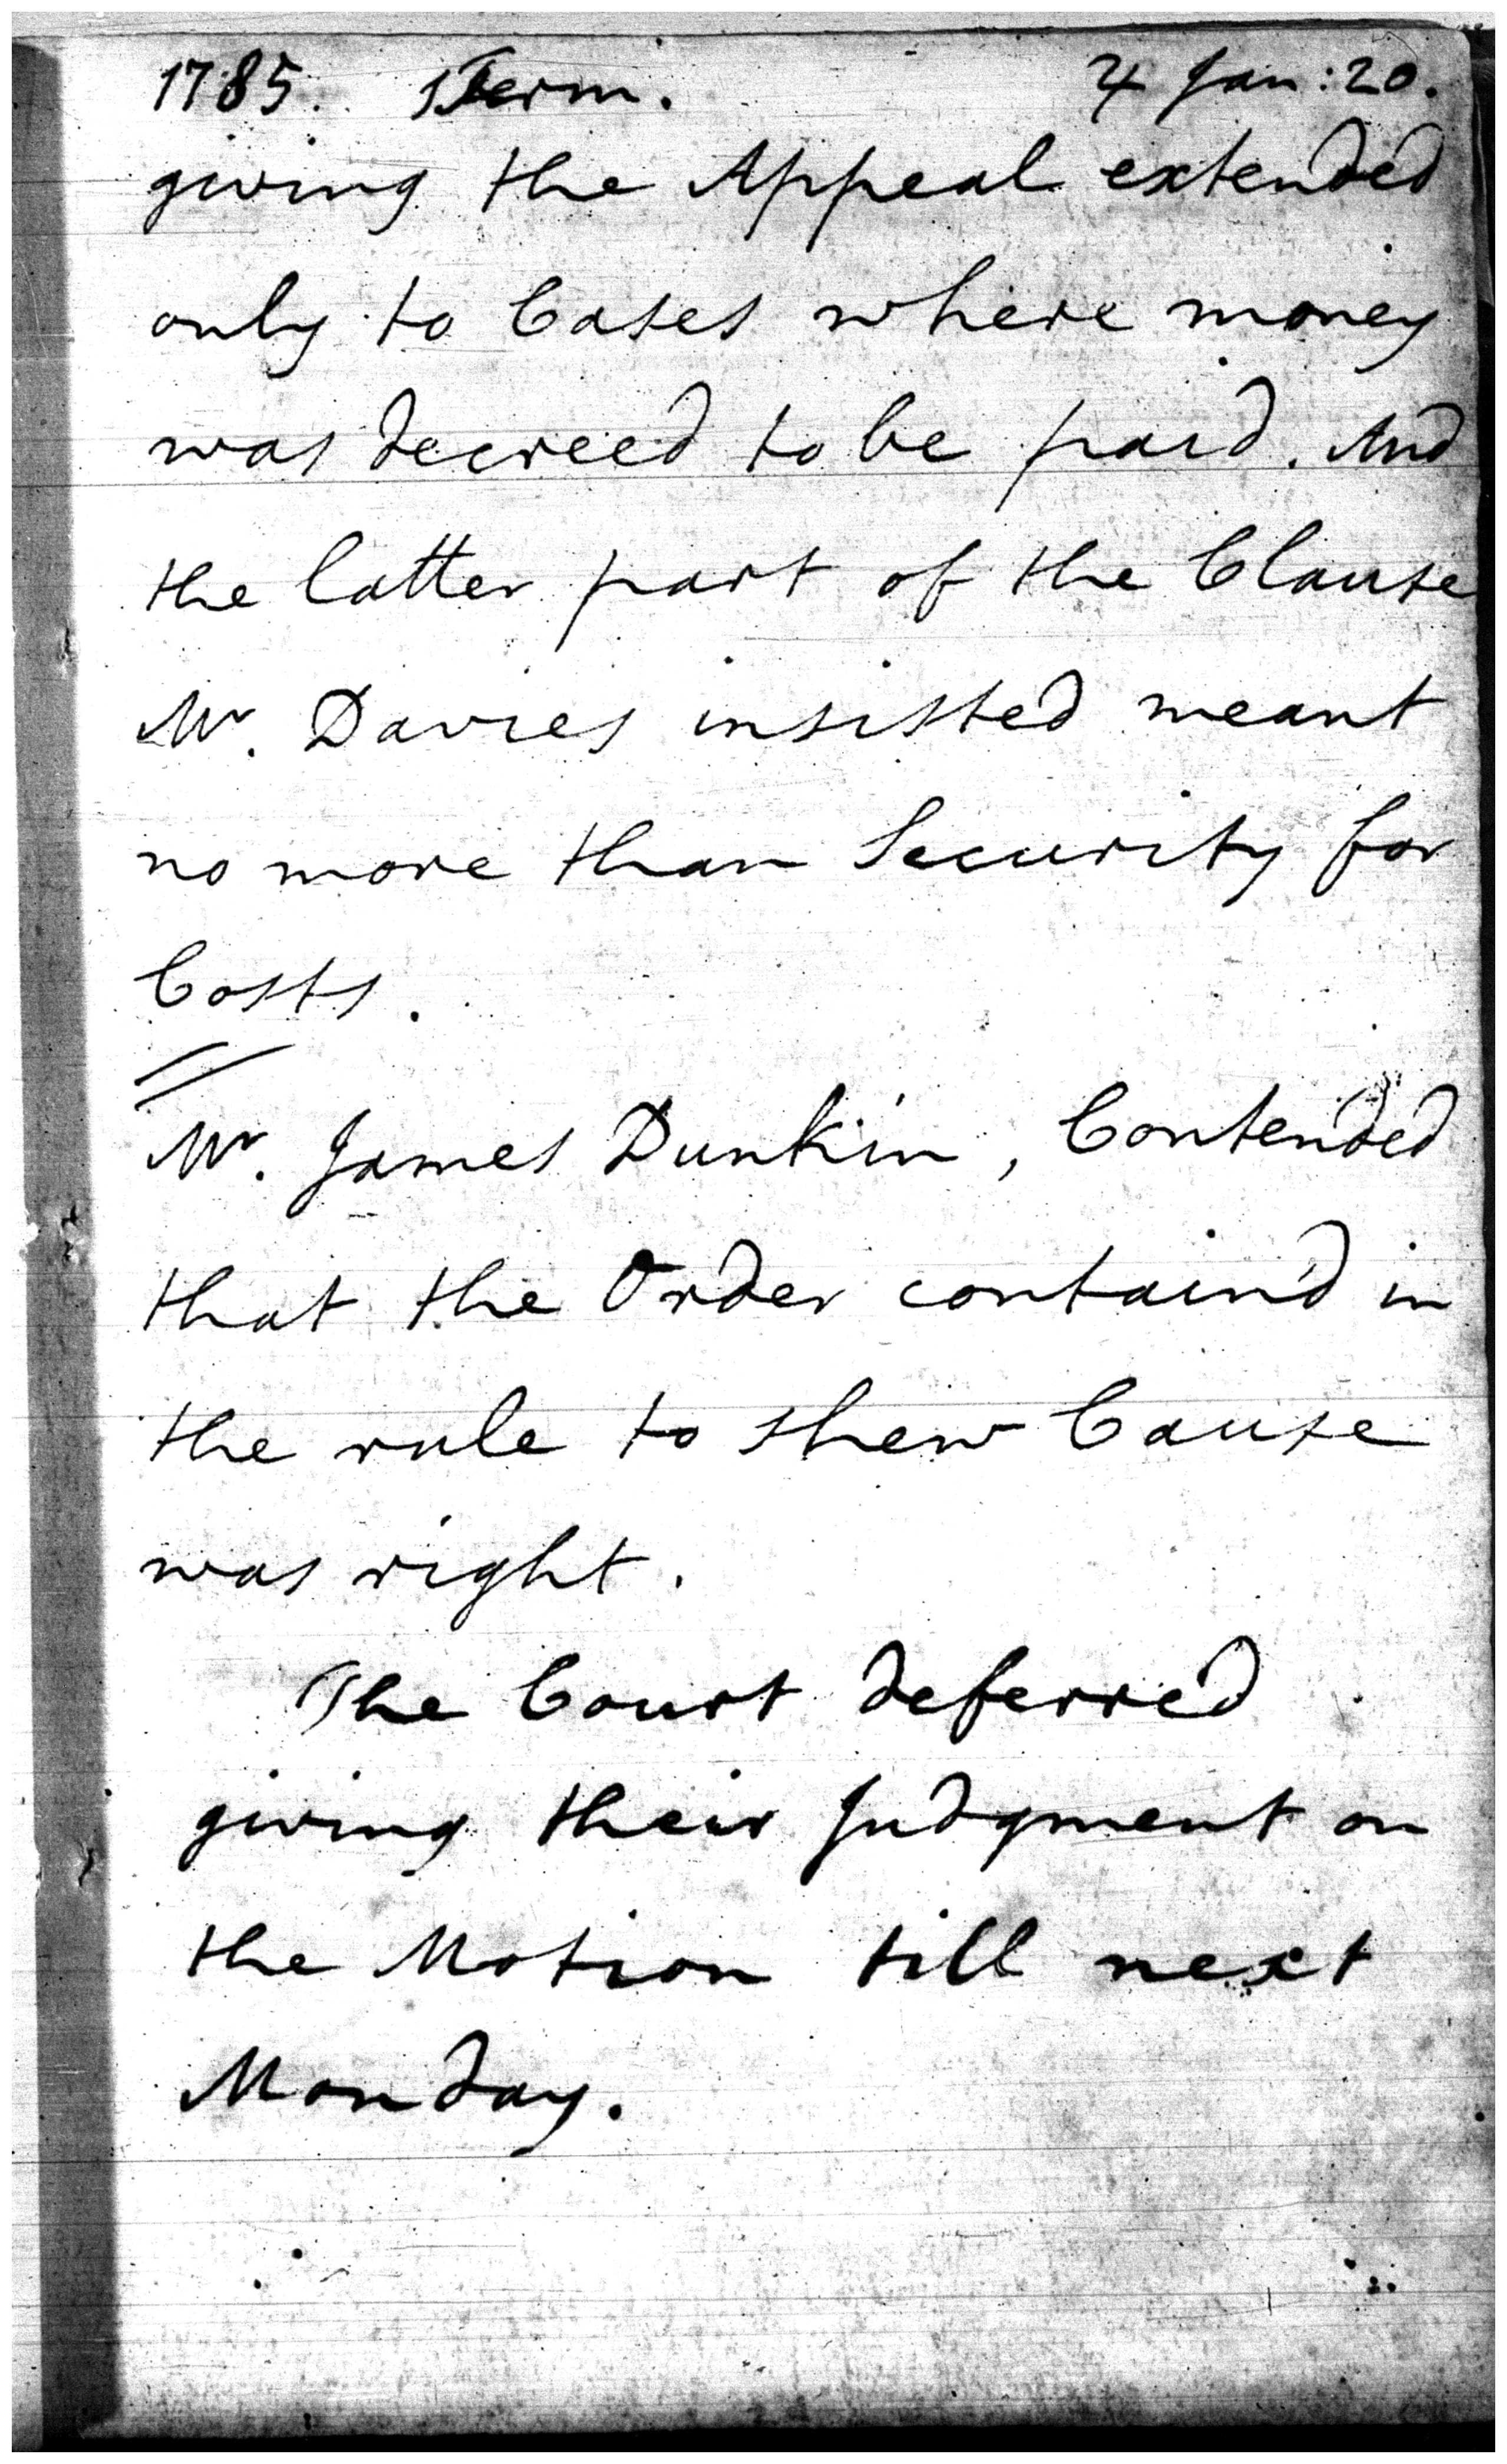 1785. 1 Term. ♃ Jan: 20.
giving the Appeal extended
only to Cases where money
was decreed to be paid. And
the latter part of the Clause
Mr. Davies insisted meant
no more than Security for
Costs.
Mr. James Dunkin, Contended
that the Order contain'd in
the rule to shew Cause
was right.
The Court deferred
giving their Judgment on
the Motion till next
Monday.